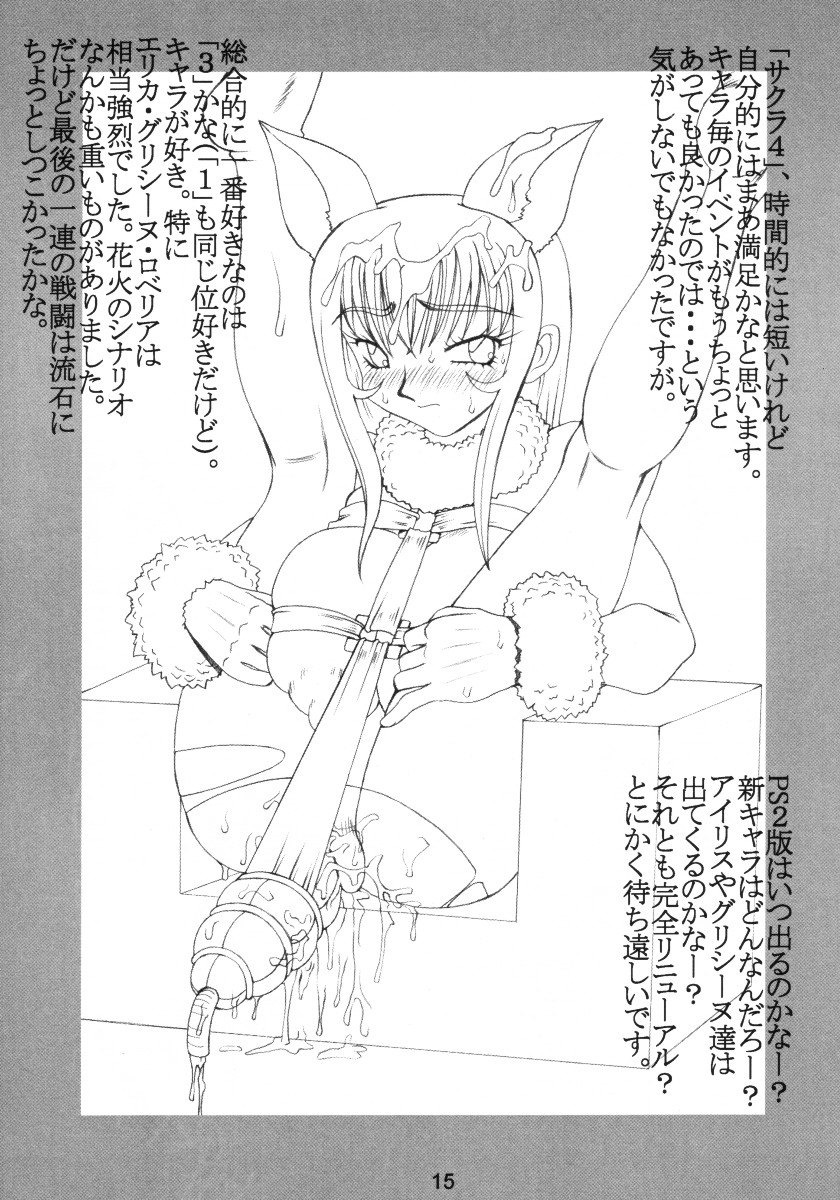 「サクラ４」、時間的には短いけれど
自分的にはまあ満足かなと思います。
キャラ毎のイベントがもうちょっと
あっても良かったのでは・・・という
気がしないでもなかったですが。
総合的に一番好きなのは
「３」かな(「１」も同じ位好きだけど)。
キャラが好き。特に
エリカ・グリシーヌ・ロベリアは
相当強烈でした。花火のシナリオ
なんかも重いものがありました。
だけど最後の一連の戦闘は流石に
ちょっとしつこかったかな。
PS2版はいつ出るのかなー？
新キャラはどんなんだろー？
アイリスやグリシーヌ達は
出てくるのかなー？
それとも完全リニューアル？
とにかく待ち遠しいです。
15